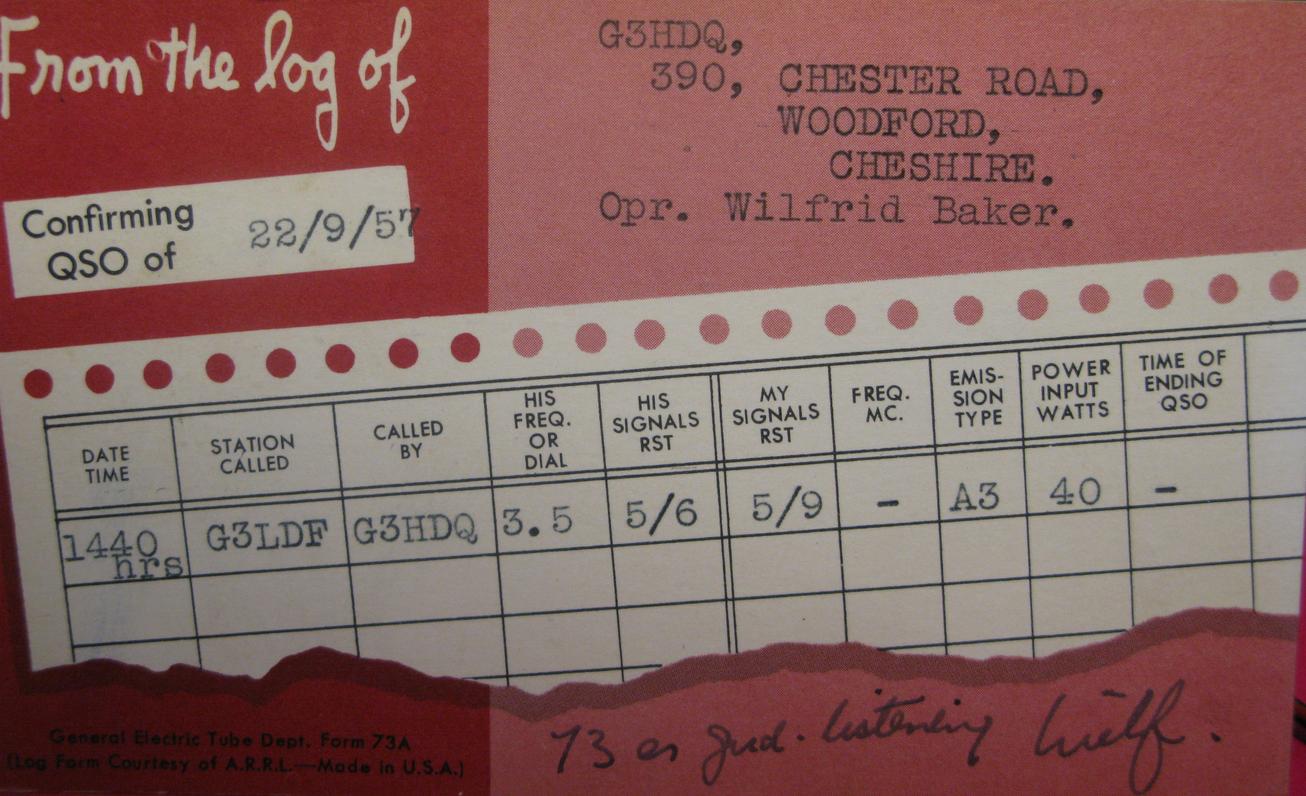 From the log of
G3HDQ,
390, CHESTER ROAD,
WOODFORD,
CHESHIRE.
Opr. Wilfrid Baker.
Confirming
QSO of
22/9/57
DATE
TIME
STATION
CALLED
CALLED
BY
HIS
FREQ.
OR
DIAL
HIS
SIGNALS
RST
MY
SIGNALS
RST
FREQ.
MC.
EMIS-
SION
TYPE
POWER
INPUT
WATTS
TIME OF
ENDING
QSO
1440 G3LDF G3HDQ 3.5 5/6 5/9 - A3 40 -
hrs
73 es gud. listening Wilf.
General Electric Tube Dept. Form 73A
(Log Form Courtesy of A.R.R.L.—Made in U.S.A.)